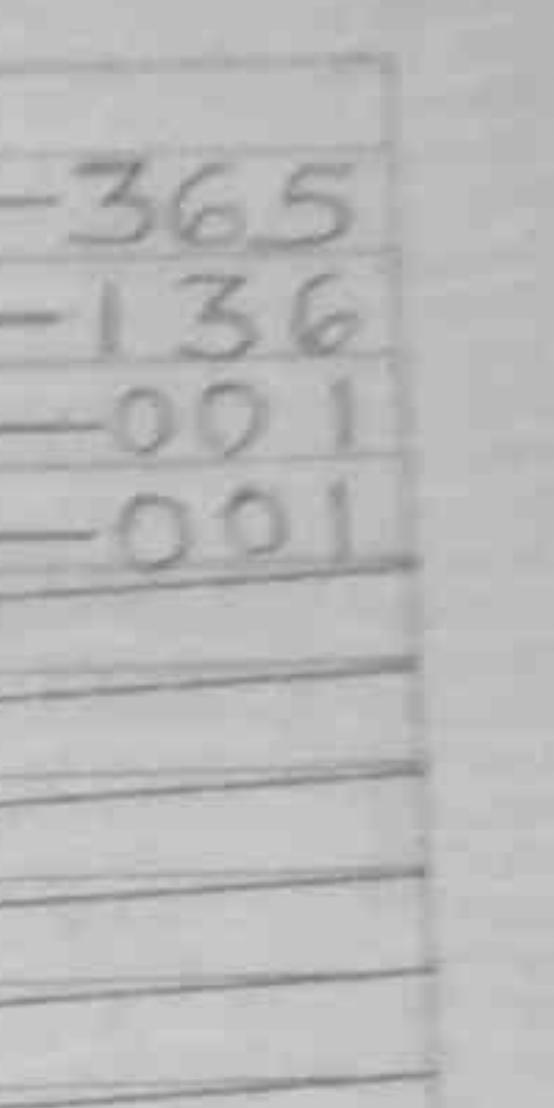 -365
-136
-001
-001